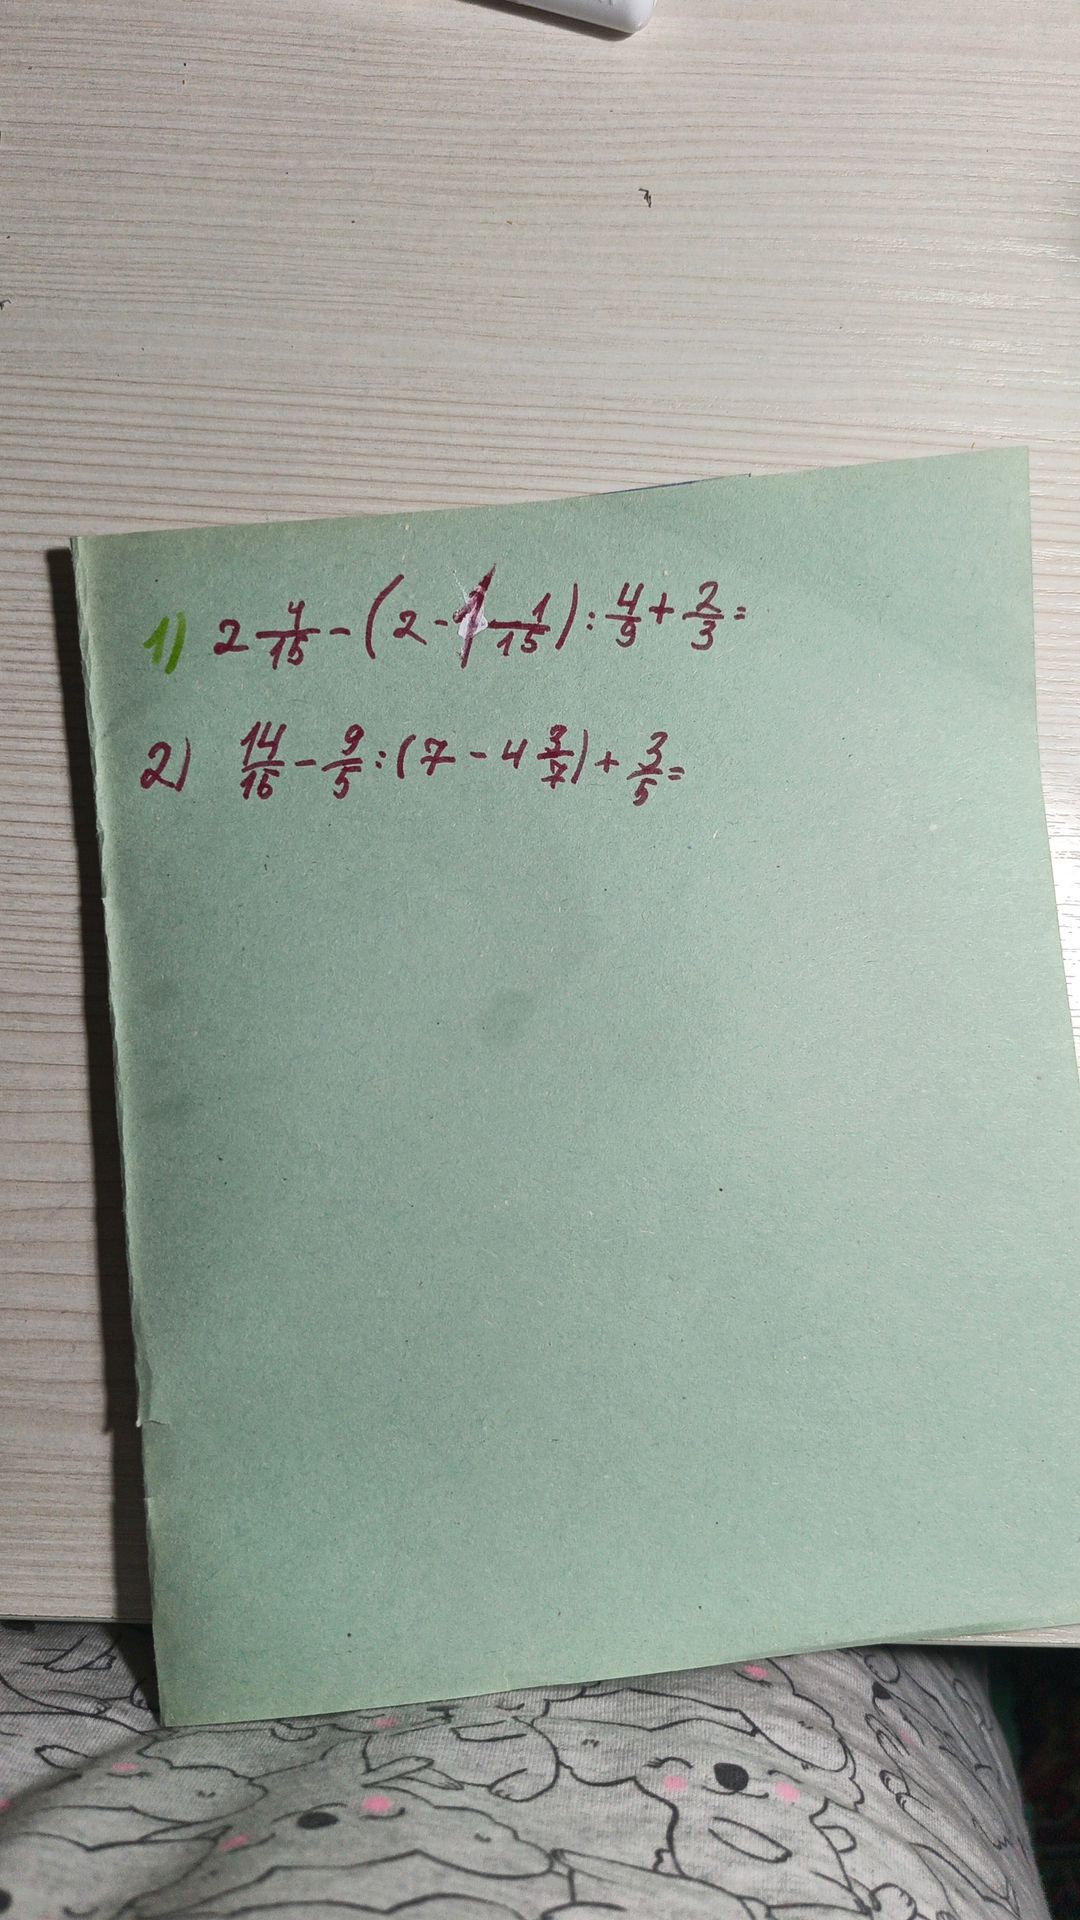 1) 2 4/15 - (2 - 1 1/15) : 4/9 + 2/3 =
2) 14/15 - 9/5 : (7 - 4 3/7) + 3/5 =